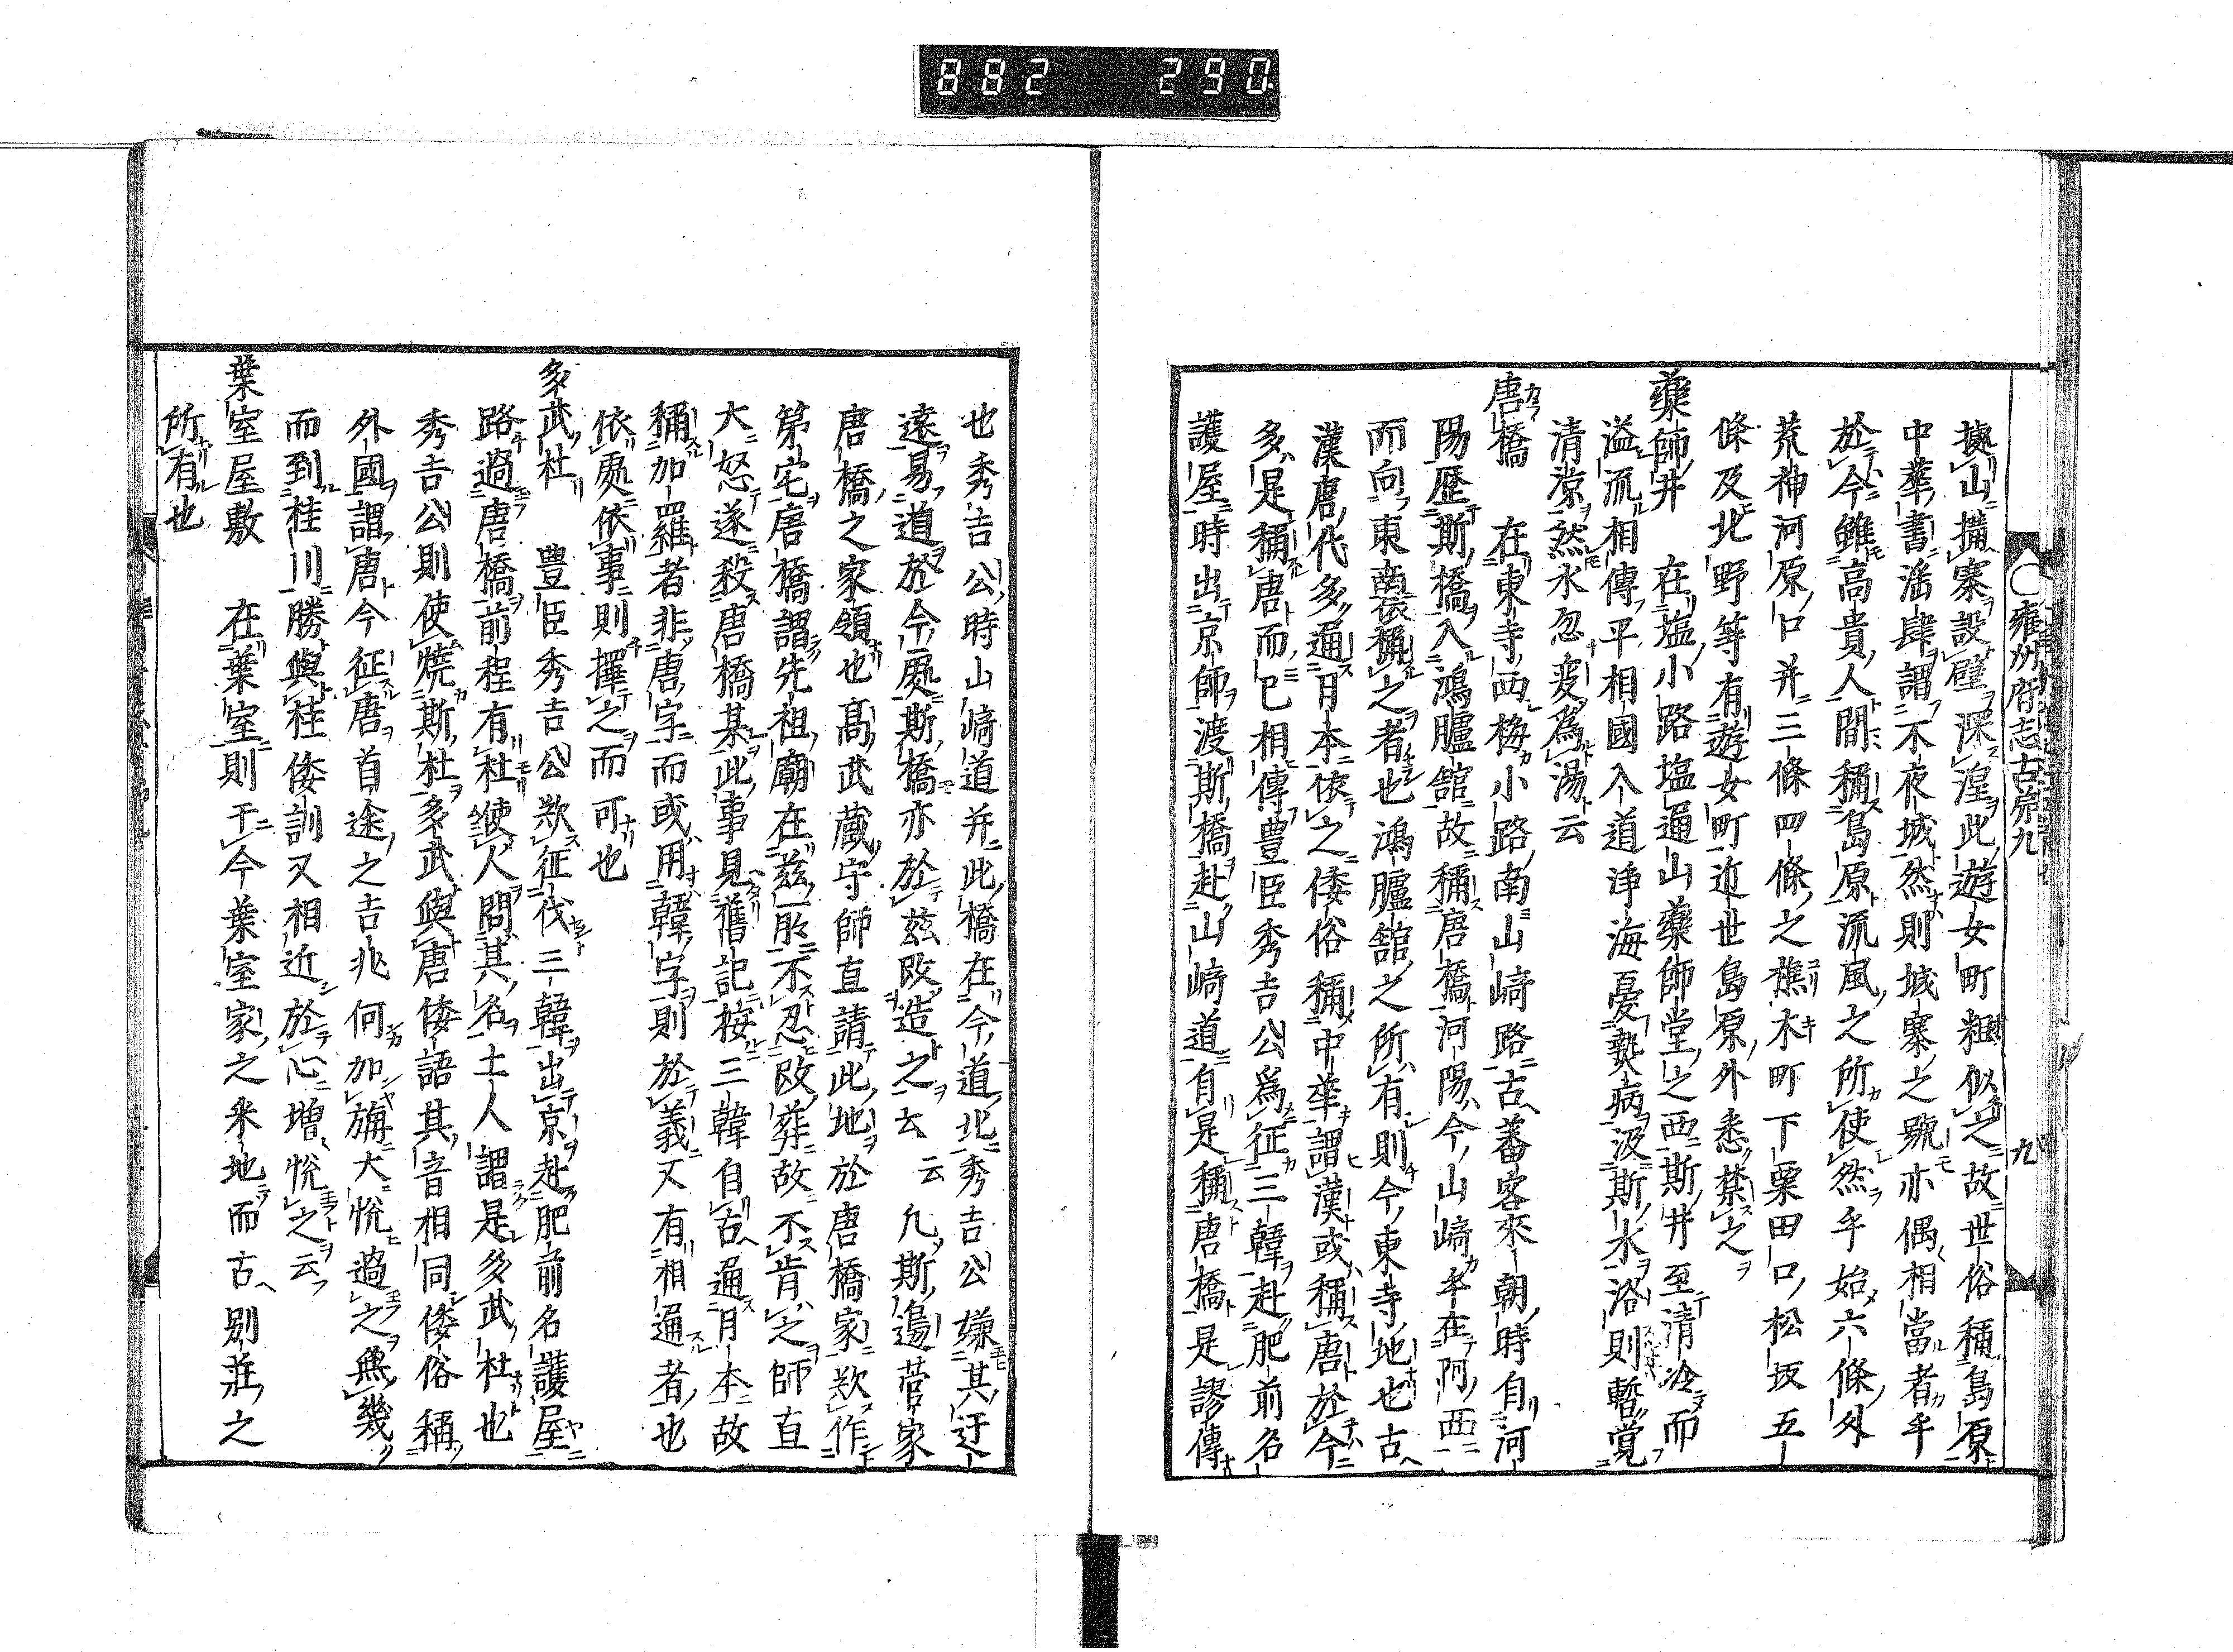 882 290
雍州府志古蹟九 九
據山搆寨設壁深湟此遊女町粗似之故世俗稱島原
中華書滛肆謂不夜城然則城寨之號亦偶相當者乎
於今雖高貴人間稱島原流風之所使然乎始六條外
荒神河原口并三條四條之樵木町下粟田口松坂五
條及北野等有遊女町近世島原外悉禁之
藥師井 在塩小路塩通山藥師堂之西斯井至清冷而
溢流相傳平相國入道淨海憂熱病汲斯水浴則暫覚
清凉然水忽変為湯云
唐橋 在東寺西梅小路南山﨑路古蕃客來朝時自河
陽歴斯橋入鴻臚舘故稱唐橋河陽今山﨑乎在阿西
而向東南表稱之者也鴻臚舘之所有則今東寺地也古
漢唐代多通日本依之倭俗稱中華謂漢或稱唐於今
多是稱唐而已相傳豊臣秀吉公為征三韓赴肥前名
護屋時出京師渡斯橋赴山﨑道自是稱唐橋是謬傳
也秀吉公時山﨑道并此橋在今道北秀吉公嫌其迂
遠易道於今處斯橋亦於茲改造之云云凡斯邉菅家
唐橋之家領也髙武藏守師直請此地於唐橋家欲作
第宅唐橋謂先祖廟在茲所不忍改葬故不肯之師直
大怒遂殺唐橋某此事見舊記按三韓自古通日本故
稱加羅者非唐字而或用韓字則於義又有相通者也
依處依事則擇之而可也
多武杜 豊臣秀吉公欲征伐三韓出京赴肥前名護屋
路過唐橋前程有杜使人問其名土人謂是多武杜也
秀吉公則使燒斯杜多武與唐倭語其音相同倭俗稱
外國謂唐今征唐首途之吉兆何加旃大悅過之無幾
而到桂川勝與桂倭訓又相近於心增悅之云
葉室屋敷 在葉室則于今葉室家之釆地而古別莊之
所有也